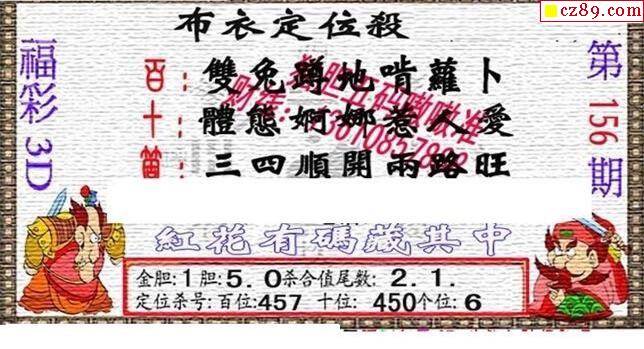 cz89.com
布衣定位殺
福彩3D
第156期
百：雙兔蹲地啃蘿卜
十：體態婀娜惹人愛
箇：三四順開兩路旺
紅花有碼藏其中
金胆:1胆:5.0杀合值尾数: 2.1.
定位杀号:百位:457 十位: 450个位:6